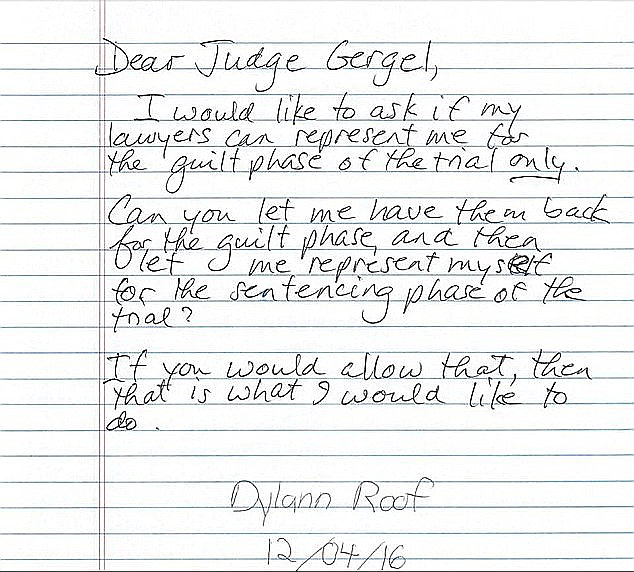 Dear Judge Gergel,
I would like to ask if my
lawyers can represent me for
the guilt phase of the trial only.
Can you let me have them back
for the guilt phase, and then
let me represent myself
for the sentencing phase of the
trial?
If you would allow that, then
that is what I would like to
do.
Dylann Roof
12/04/16